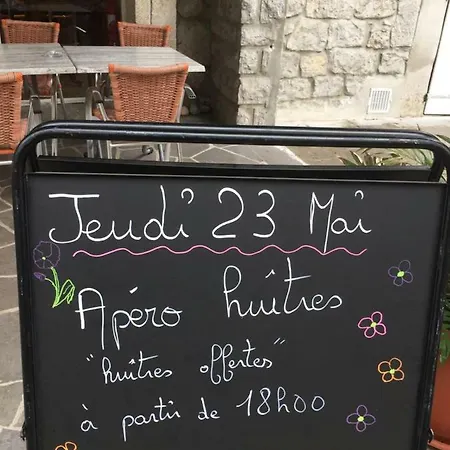 Jeudi 23 Mai
Apéro huîtres
"huîtres offertes"
à partir de 18h00